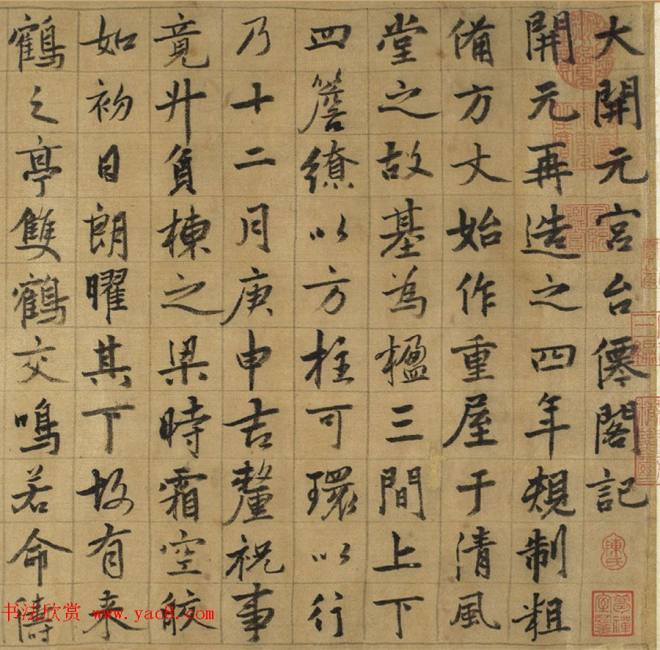 大開元宮台僊閣記
開元再造之四年規制粗
備方丈始作重屋于清風
堂之故基為楹三間上下
四簷繚以方柱可環以行
乃十二月庚申吉釐祝事
竟升負棟之梁時霜空皎
如初日朗曜其下故有來
鶴之亭雙鶴交鳴若命儔
书法欣赏 www.yac8.com